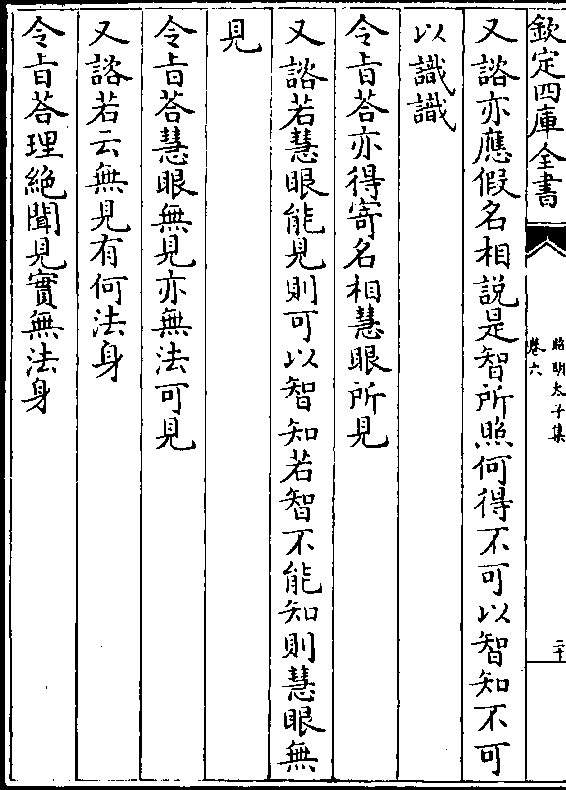 欽定四庫全書
昭明太子集
卷六
二十
又諮亦應假名相說是智所照何得不可以智知不可
以識識
令旨荅亦得寄名相慧眼所見
又諮若慧眼能見則可以智知若智不能知則慧眼無
見
令旨荅慧眼無見亦無法可見
又諮若云無見有何法身
令旨荅理絶聞見實無法身